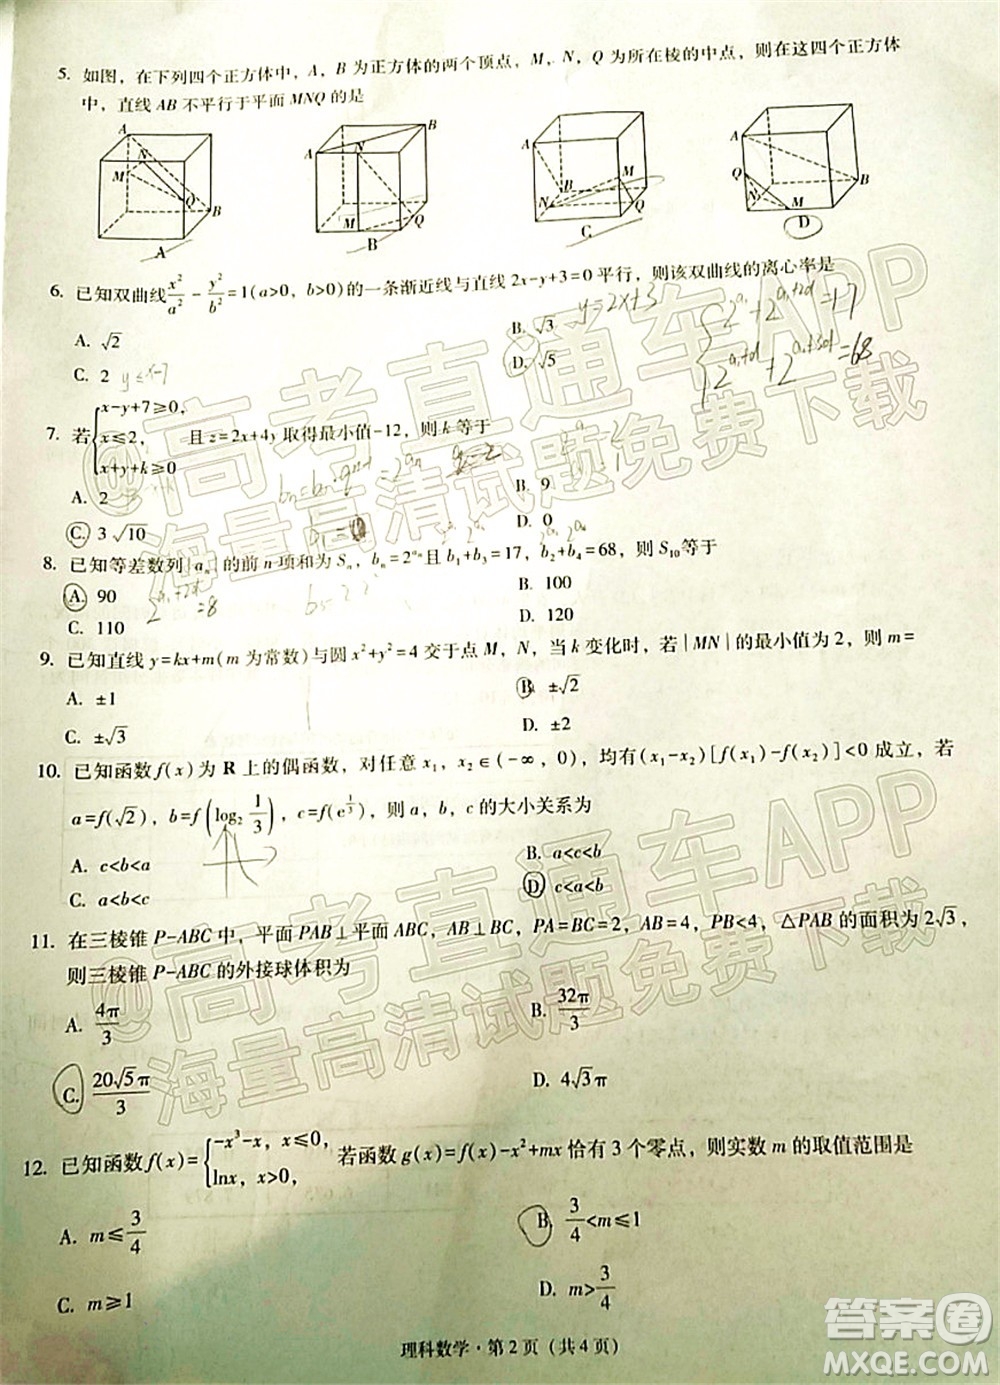 5. 如图，在下列四个正方体中，A，B 为正方体的两个顶点，M，N，Q 为所在棱的中点，则在这四个正方体
中，直线 AB 不平行于平面 MNQ 的是
A N M Q B A
A N B M Q B
A B N M Q C
A N B M D
6. 已知双曲线 x²/a² - y²/b² =1(a>0，b>0)的一条渐近线与直线 2x-y+3=0 平行，则该双曲线的离心率是
A. √2 B. √3 y=2x+3
C. 2 D. √5
7. 若 {x-y+7≥0，x≤2，x+y+k≥0 且 z=2x+4y 取得最小值-12，则 k 等于
A. 2 B. 9
C. 3√10 D. 0
8. 已知等差数列{aₙ}的前 n 项和为 Sₙ，bₙ=2^{aₙ}且 b₁+b₃=17，b₂+b₄=68，则 S₁₀等于
A. 90 B. 100
C. 110 D. 120
9. 已知直线 y=kx+m(m 为常数)与圆 x²+y²=4 交于点 M，N，当 k 变化时，若|MN|的最小值为 2，则 m=
A. ±1 B. ±√2
C. ±√3 D. ±2
10. 已知函数 f(x)为 R 上的偶函数，对任意 x₁，x₂∈(-∞，0)，均有(x₁-x₂)[f(x₁)-f(x₂)]<0 成立，若
a=f(√2)，b=f(log₂ 1/3)，c=f(e^{1/3})，则 a，b，c 的大小关系为
A. c<b<a B. a<c<b
C. a<b<c D. c<a<b
11. 在三棱锥 P-ABC 中，平面 PAB⊥平面 ABC，AC⊥BC，PA=BC=2，AB=4，PB<4，△PAB 的面积为 2√3，
则三棱锥 P-ABC 的外接球体积为
A. 4π/3 B. 32π/3
C. 20√5π/3 D. 4√3π
12. 已知函数 f(x)={-x³-x，x≤0，lnx，x>0， 若函数 g(x)=f(x)-x²+mx 恰有 3 个零点，则实数 m 的取值范围是
A. m≤3/4 B. 3/4<m≤1
C. m≥1 D. m>3/4
理科数学·第 2 页（共 4 页）
@高考直通车APP
海量高清试题免费下载
@高考直通车APP
海量高清试题免费下载
答案圈
MXQE.COM